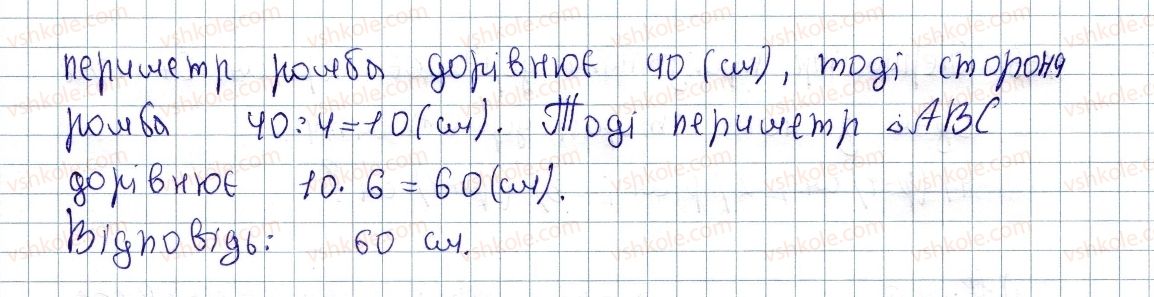 периметр ромба дорівнює 40 (см), тоді сторона
ромба 40:4=10(см). Тоді периметр △ABC
дорівнює 10·6=60(см).
Відповідь: 60 см.
vshkole.com